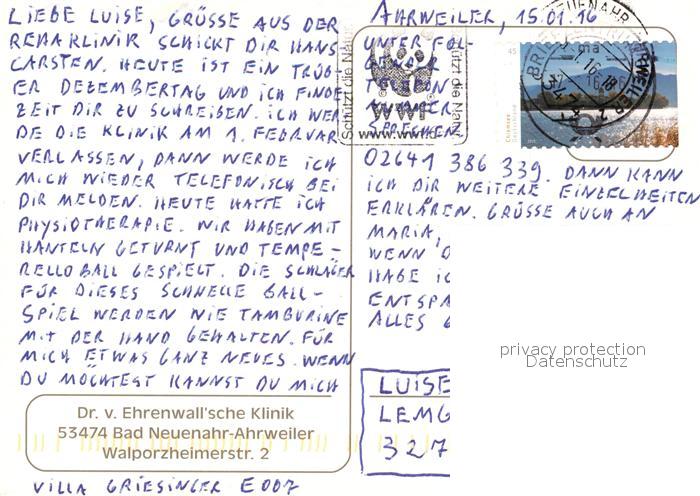 LIEBE LUISE, GRÜSSE AUS DER
REHAKLINIK SCHICKT DIR HANS
CARSTEN. HEUTE IST EIN TRÜB-
ER DEZEMBERTAG UND ICH FINDE
ZEIT DIR ZU SCHREIBEN. ICH WER
DE DIE KLINIK AM 1. FEBRUAR
VERLASSEN, DANN WERDE ICH
MICH WIEDER TELEFONISCH BEI
DIR MELDEN. HEUTE HATTE ICH
PHYSIOTHERAPIE. WIR HABEN MIT
HANTELN GETURNT UND TEMPE-
RELLO BALL GESPIELT. DIE SCHLÄGER
FÜR DIESES SCHNELLE BALL-
SPIEL WERDEN WIE TAMBURINE
MIT DER HAND GEHALTEN. FÜR
MICH ETWAS GANZ NEUES. WENN
DU MÖCHTEST KANNST DU MICH
Dr. v. Ehrenwall'sche Klinik
53474 Bad Neuenahr-Ahrweiler
Walporzheimerstr. 2
VILLA GRIESINGER E007
AHRWEILER, 15.01.16
UNTER FOL-
GENDER
TELEFON
NUMMER
SPRECHEN
02641 386 339. DANN KANN
ICH DIR WEITERE EINZELHEITEN
ERKLÄREN. GRÜSSE AUCH AN
MARIA,
WENN
HABE IC
ENTSPA
ALLES
LUISE
LEMG
327
Schützt die Natur
WWF
www.wwf
Schützt die Natur
45
Chiemsee
Deutschland
privacy protection
Datenschutz